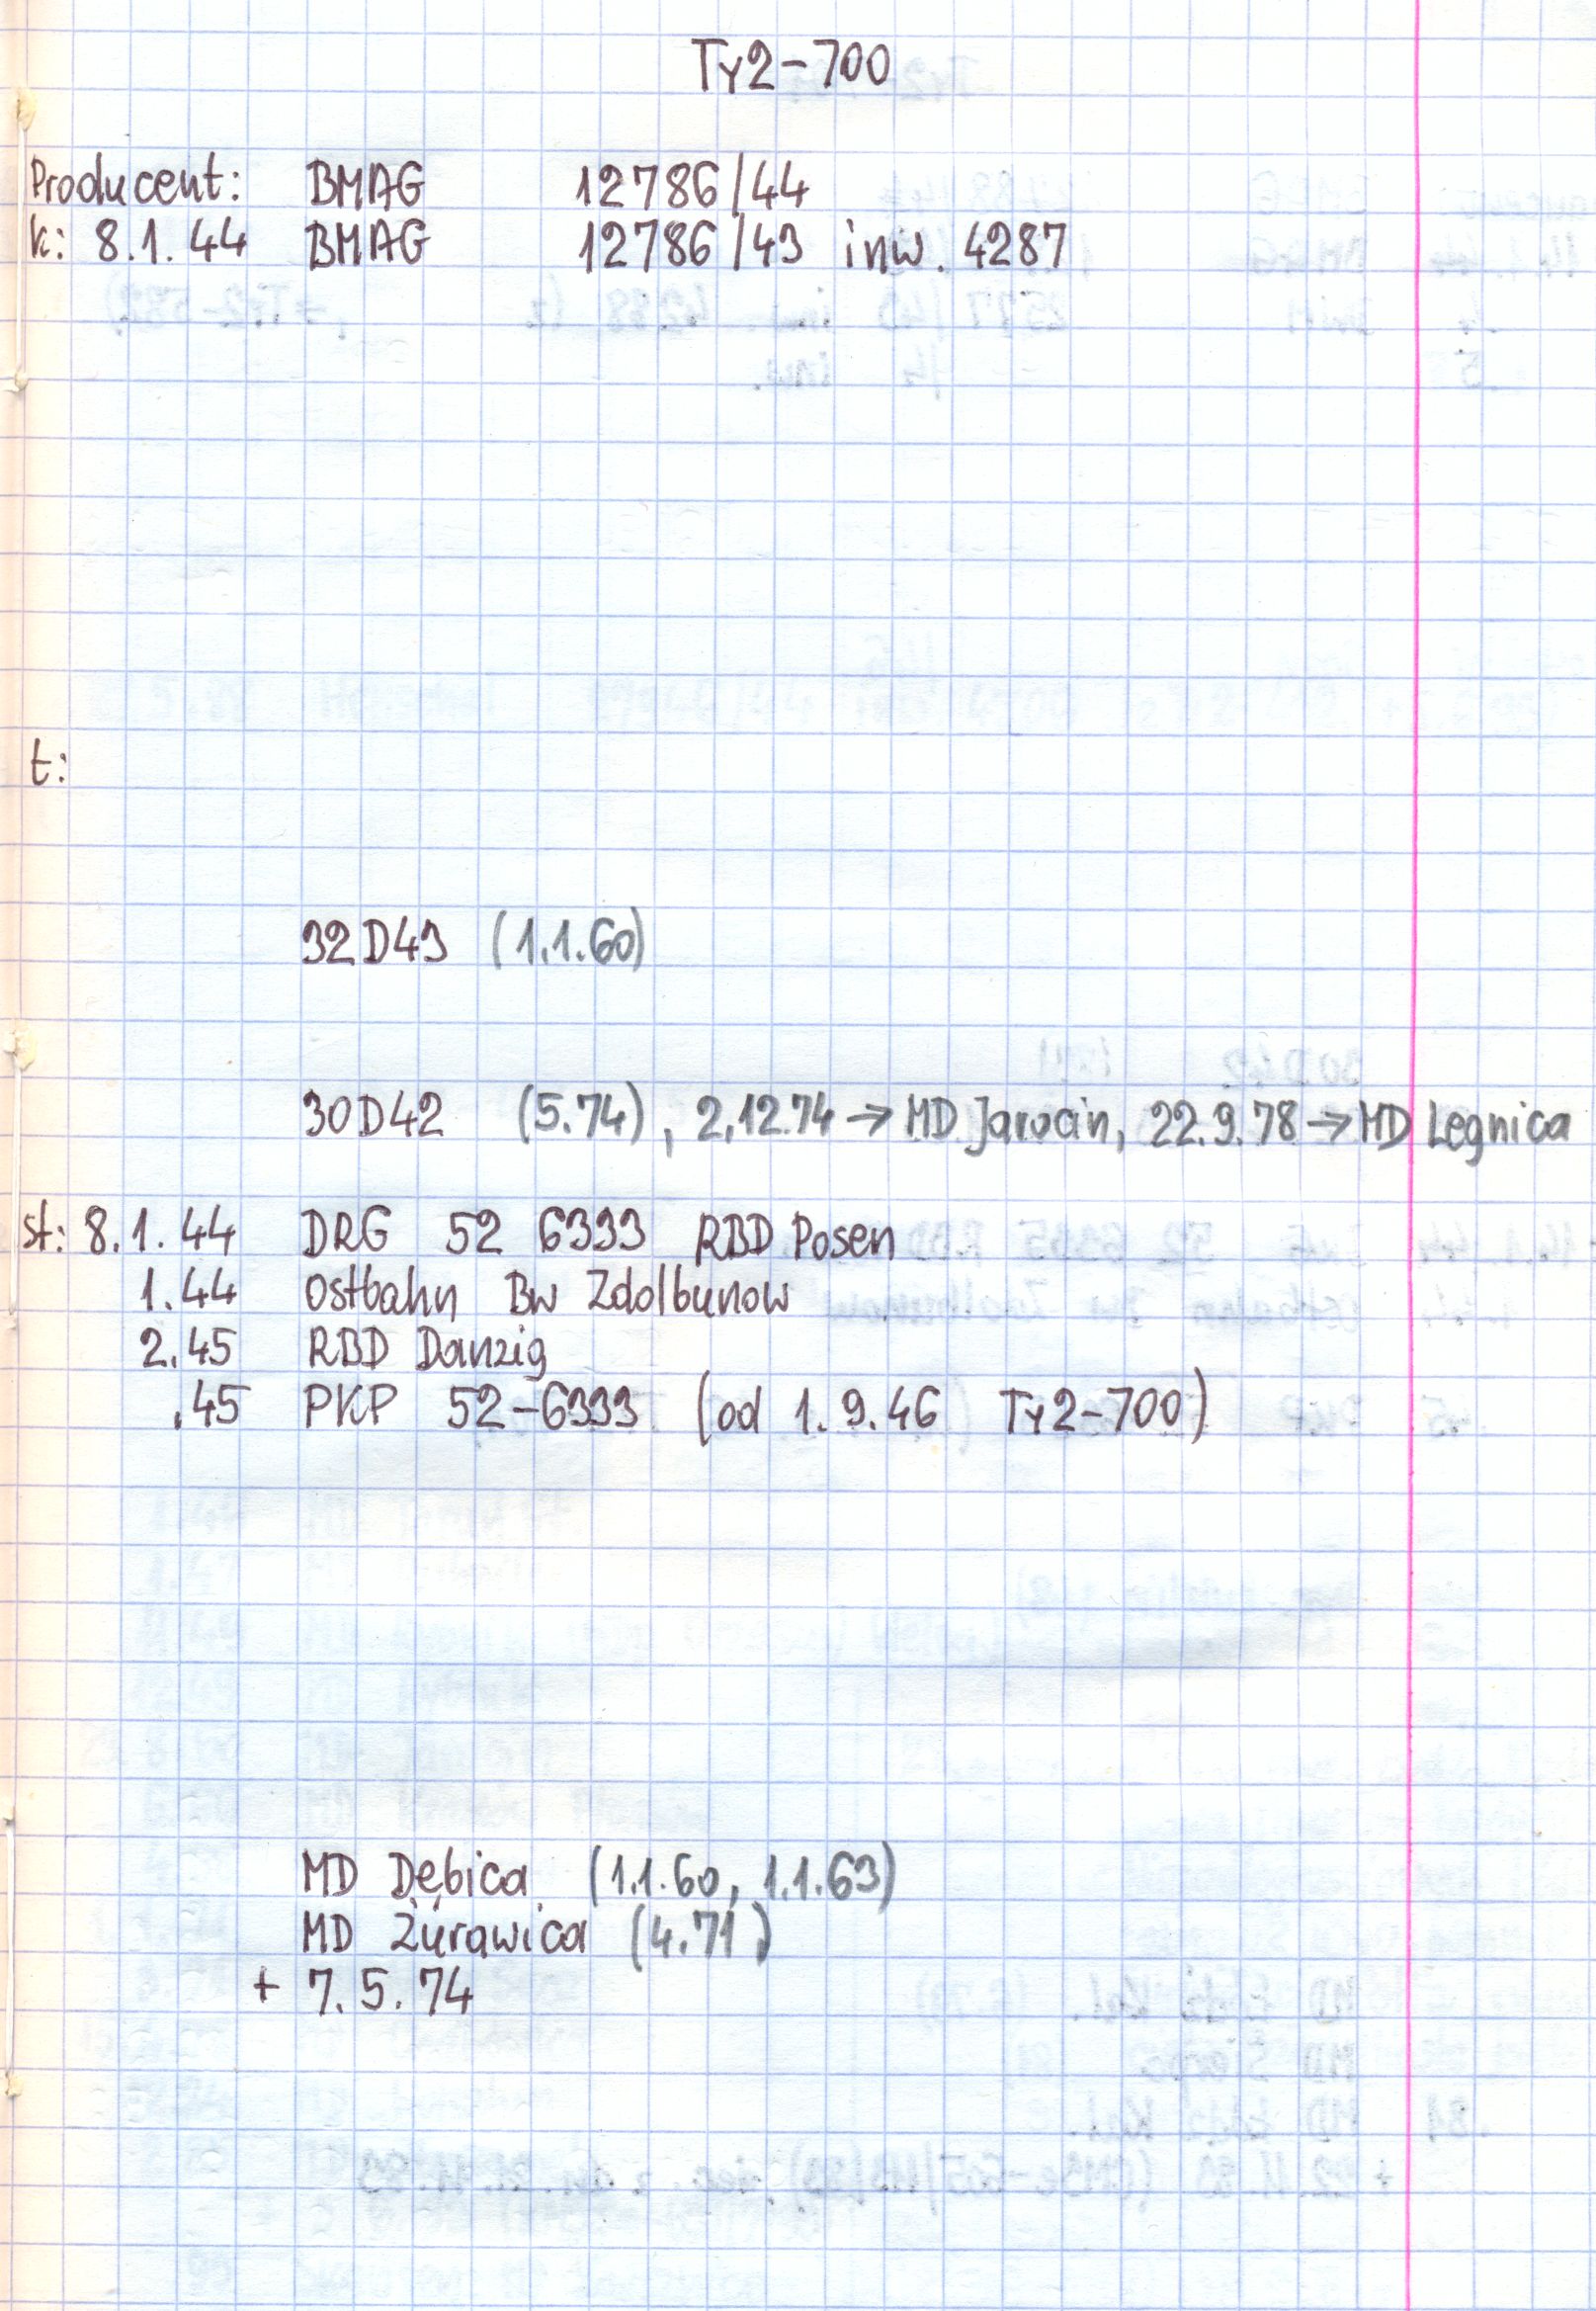 Ty2-700
Producent: BMAG 12786/44
k: 8.1.44 BMAG 12786/43 inw. 4287
t:
32D43 (1.1.60)
30D42 (5.74), 2.12.74 → MD Jarocin, 22.9.78 → MD Legnica
st: 8.1.44 DRG 52 6333 RBD Posen
1.44 Ostbahn Bw Zdolbunow
2.45 RBD Danzig
.45 PKP 52-6333 (od 1.9.46 Ty2-700)
MD Dębica (1.1.60, 1.1.63)
MD Żurawica (4.71)
+ 7.5.74